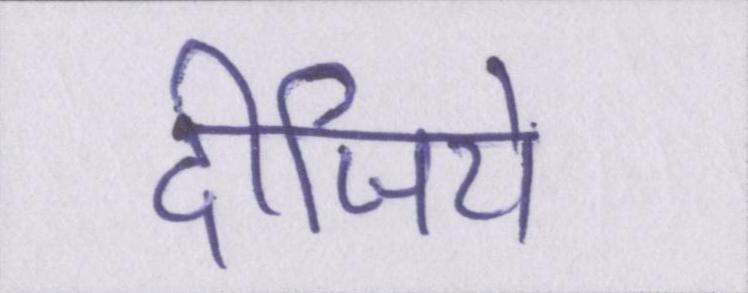 दीजिये